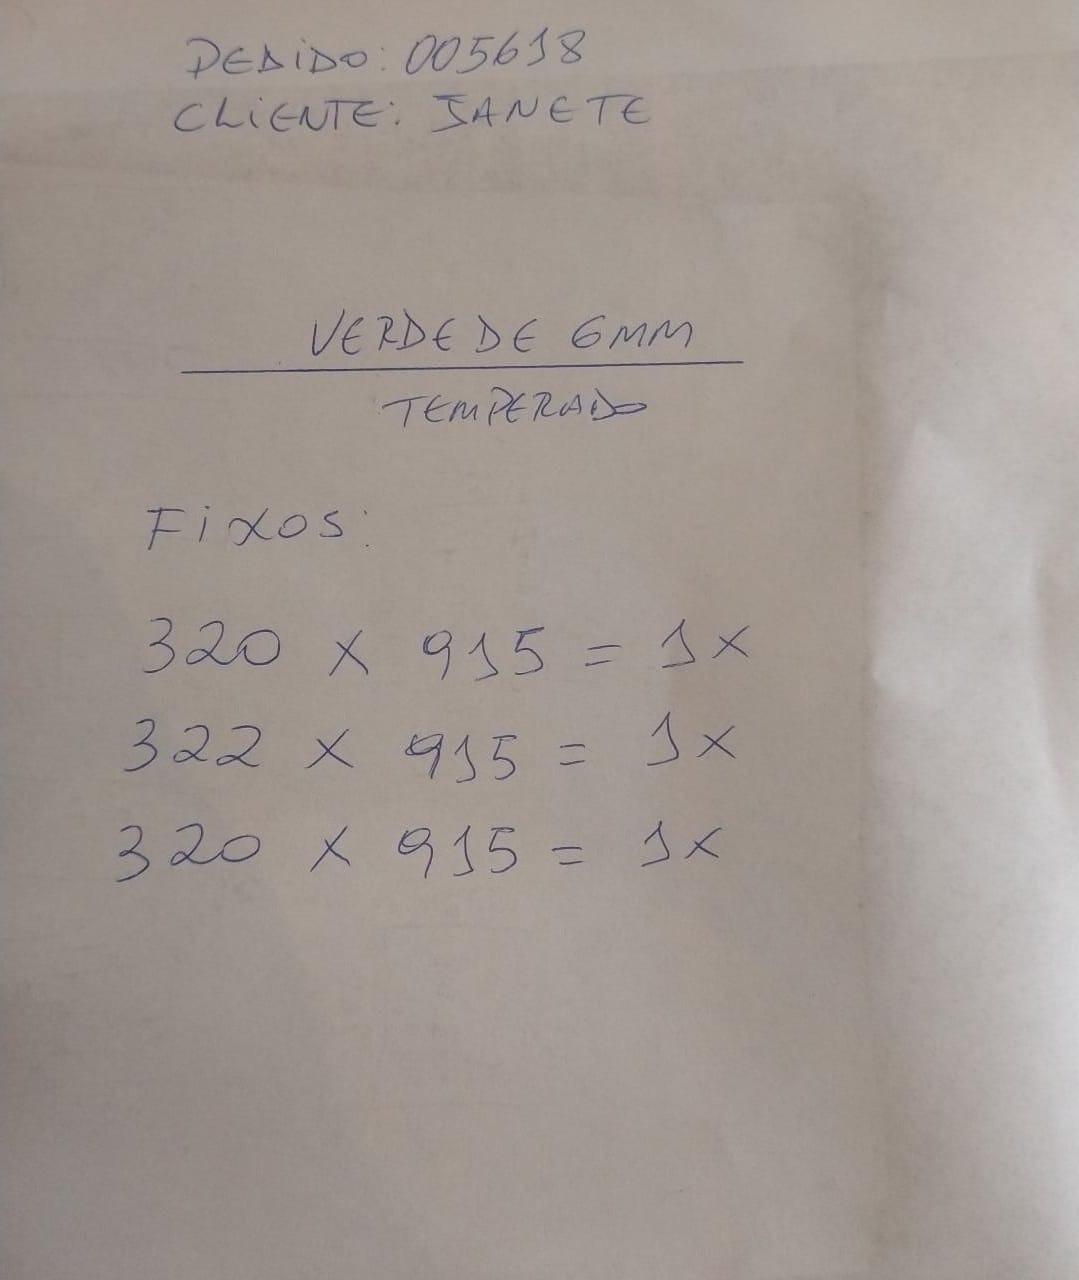 PEDIDO: 005618
CLIENTE: JANETE
VERDE DE 6MM
TEMPERADO
FIXOS:
320 x 915 = 1x
322 x 915 = 1x
320 x 915 = 1x